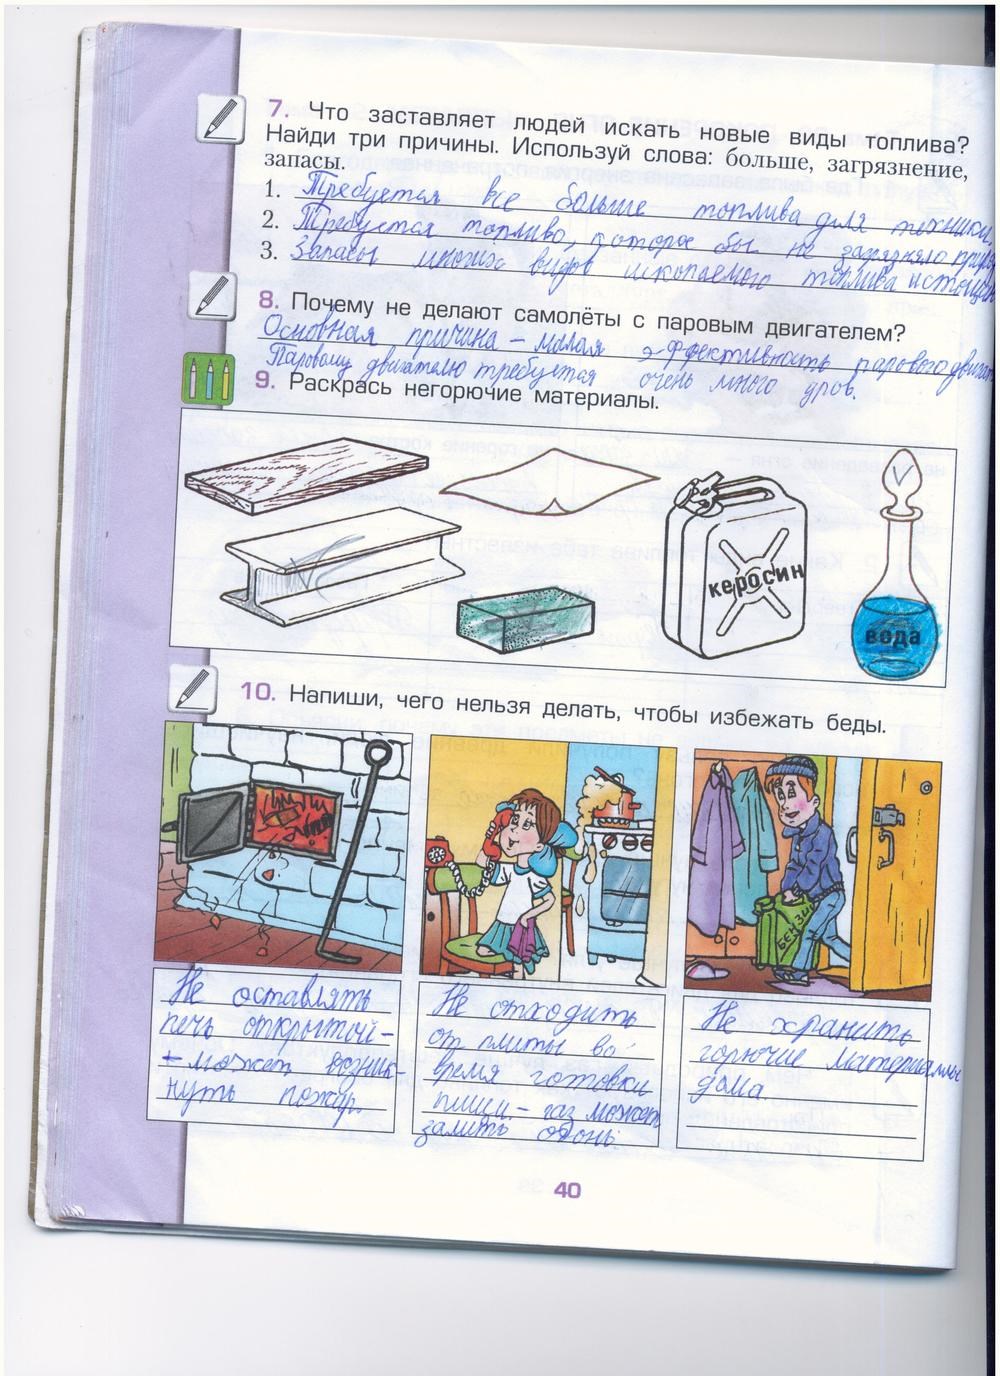 7. Что заставляет людей искать новые виды топлива?
Найди три причины. Используй слова: больше, загрязнение,
запасы.
1. Требуется все больше топлива для техники,
2. Требуется топливо, которое бы не загрязняло
3. Запасы многих видов ископаемого топлива
8. Почему не делают самолёты с паровым двигателем?
Основная причина - малая эффективность парового
Паровому двигателю требуется очень много дров.
9. Раскрась негорючие материалы.
керосин
вода
10. Напиши, чего нельзя делать, чтобы избежать беды.
БЕНЗИН
Не оставлять
печь открытой -
- может возник-
нуть пожар.
Не отходить
от плиты во
время готовки
пищи - газ может
залить огонь.
Не хранить
горючие материаллы
дома.
40